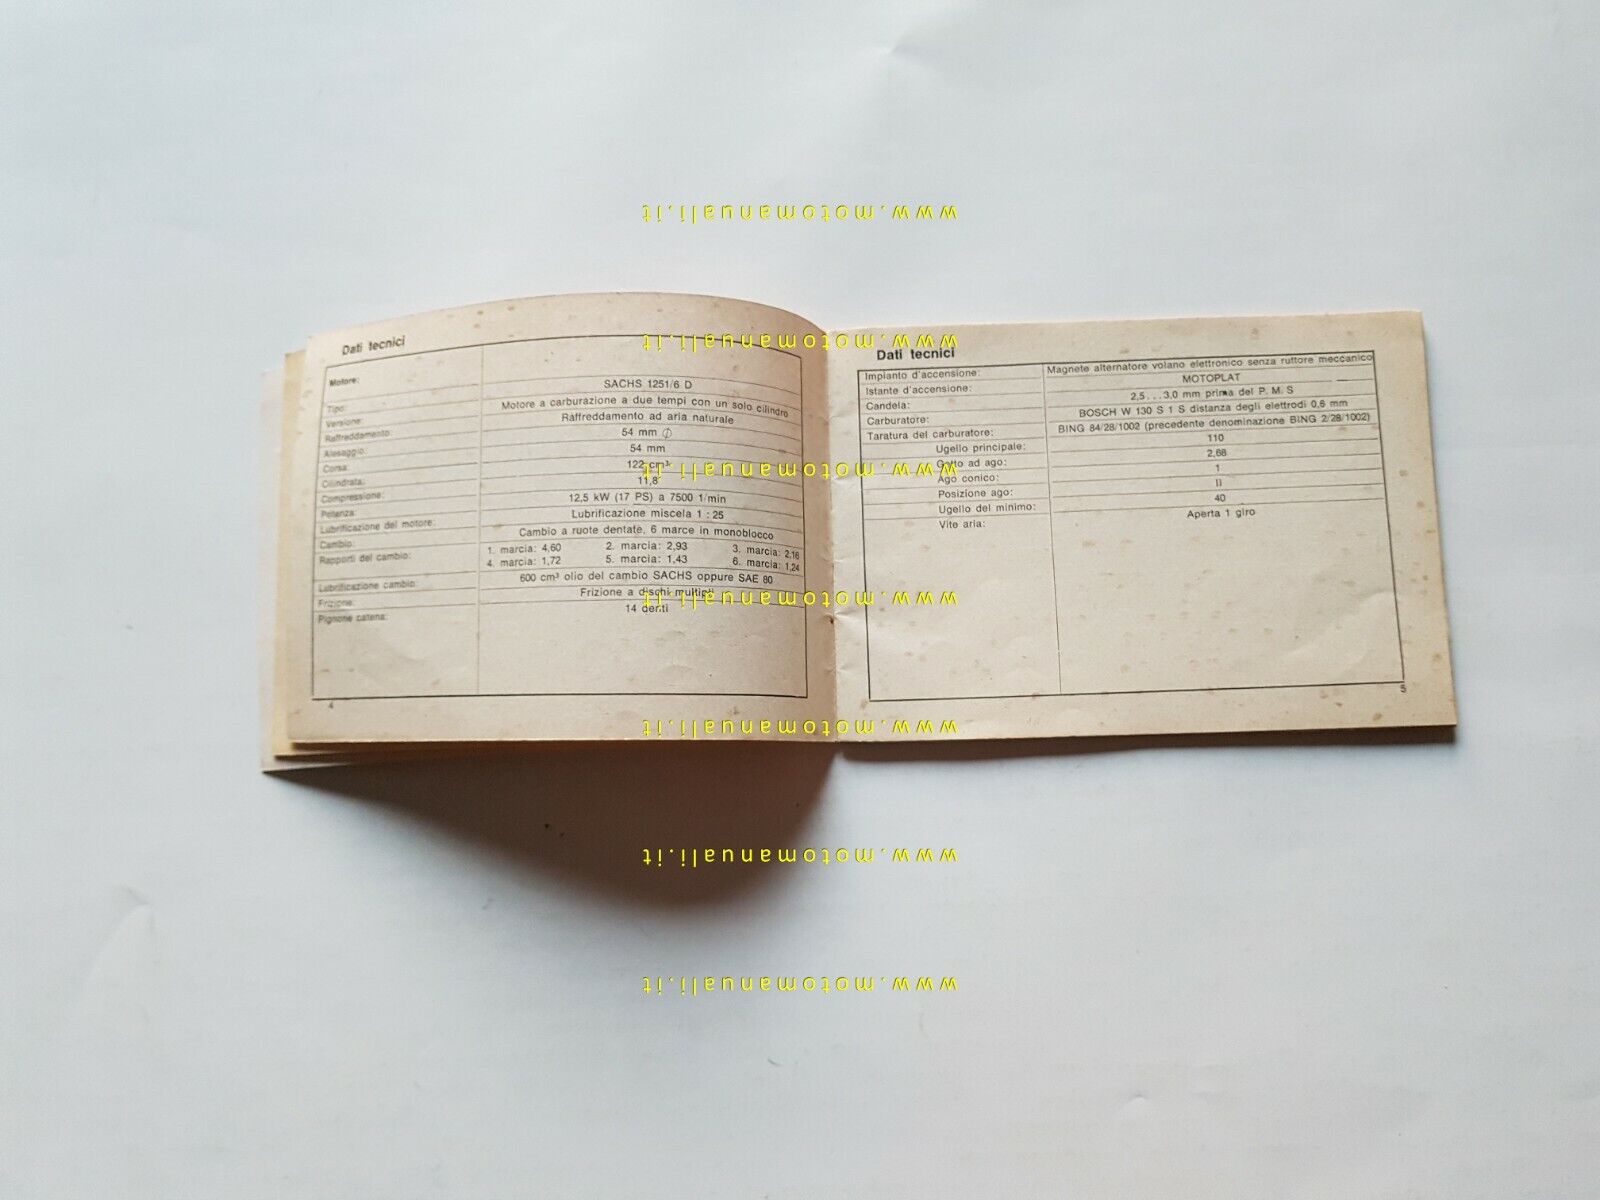 www.motomanuali.it
Dati tecnici
Motore:
Tipo: SACHS 1251/6 D
Versione: Motore a carburazione a due tempi con un solo cilindro
Raffreddamento: Raffreddamento ad aria naturale
Alesaggio: 54 mm ∅
Corsa: 54 mm
Cilindrata: 122 cm³
Compressione: 11,8
Potenza: 12,5 kW (17 PS) a 7500 1/min
Lubrificazione del motore: Lubrificazione miscela 1 : 25
Cambio: Cambio a ruote dentate, 6 marce in monoblocco
Rapporti del cambio: 1. marcia: 4,60 2. marcia: 2,93 3. marcia: 2,16
4. marcia: 1,72 5. marcia: 1,43 6. marcia: 1,24
Lubrificazione cambio: 600 cm³ olio del cambio SACHS oppure SAE 80
Frizione: Frizione a dischi multipli
Pignone catena: 14 denti
4
Dati tecnici
Impianto d'accensione: Magnete alternatore volano elettronico senza ruttore meccanico
MOTOPLAT
Istante d'accensione: 2,5...3,0 mm prima del P. M. S
Candela: BOSCH W 130 S 1 S distanza degli elettrodi 0,6 mm
Carburatore: BING 84/28/1002 (precedente denominazione BING 2/28/1002)
Taratura del carburatore:
Ugello principale: 110
Getto ad ago: 2,68
Ago conico: 1
Posizione ago: II
Ugello del minimo: 40
Vite aria: Aperta 1 giro
5
www.motomanuali.it
www.motomanuali.it
www.motomanuali.it
www.motomanuali.it
www.motomanuali.it
www.motomanuali.it